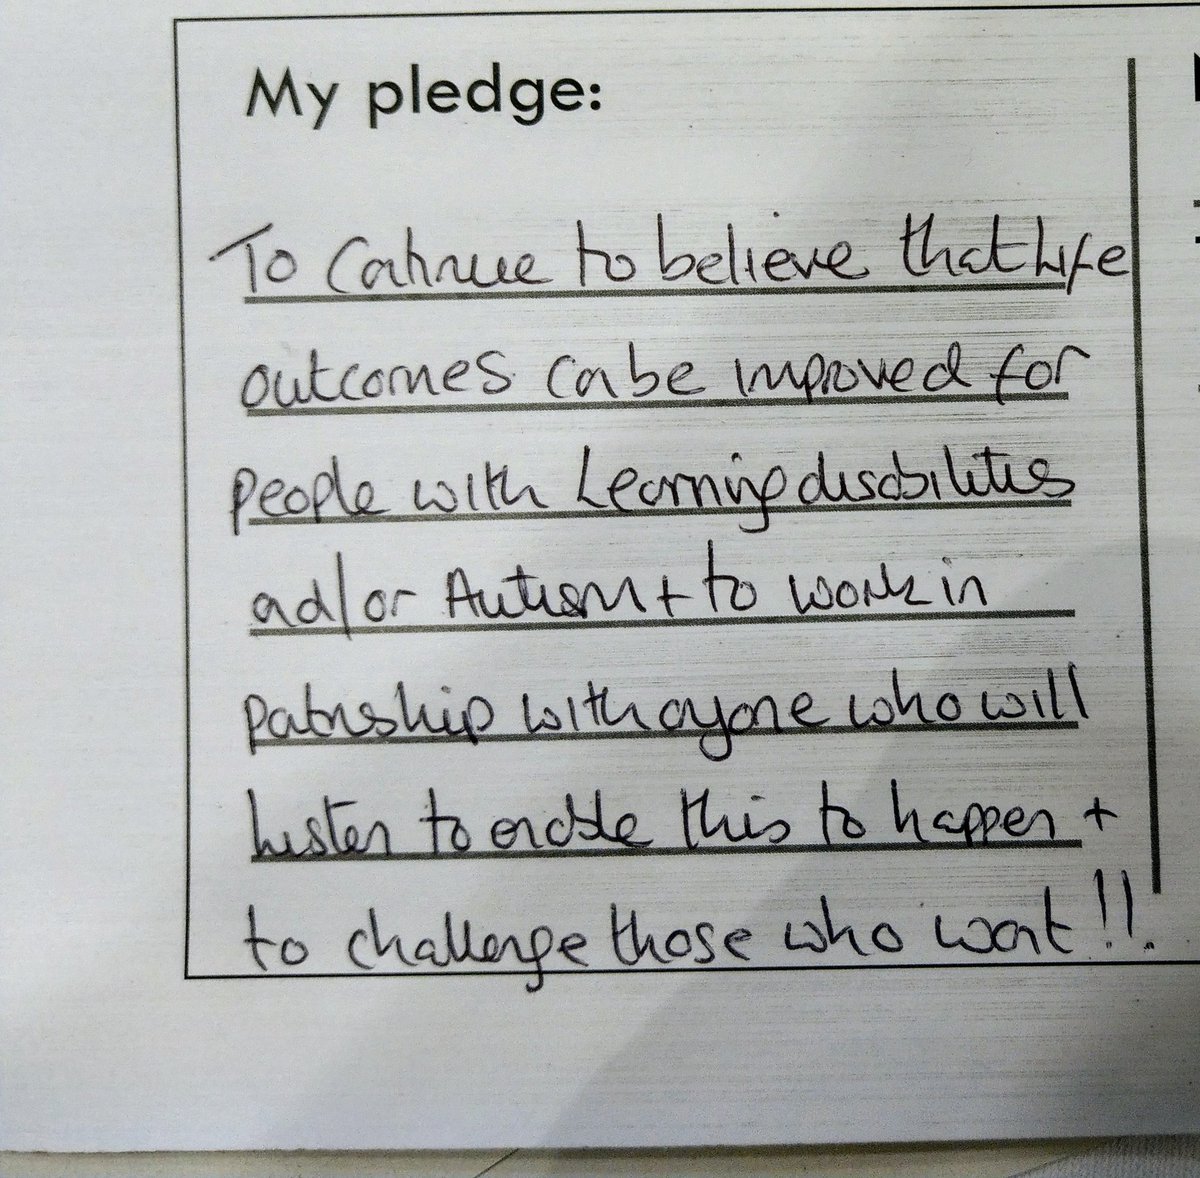 My pledge:
To Continue to believe that Life
outcomes can be improved for
people with Learning disabilities
and/or Autism + to work in
patnership with anyone who will
Listen to enable this to happen +
to challenge those who wont!!.